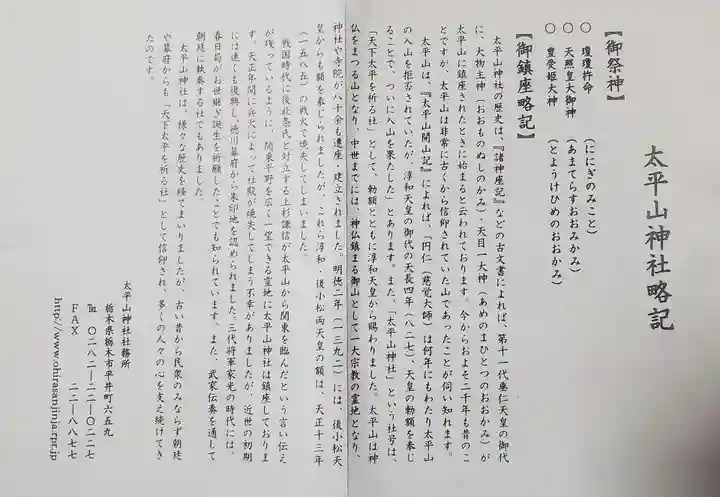 太平山神社略記
【御祭神】
○ 瓊瓊杵命 (ににぎのみこと)
○ 天照皇大御神 (あまてらすおおみかみ)
○ 豊受姫大神 (とようけひめのおおかみ)
【御鎮座略記】
太平山神社の歴史は、『諸神座記』などの古文書によれば、第十一代垂仁天皇の御代
に、大物主神(おおものぬしのかみ)・天目一大神(あめのまひとつのおおかみ)が
太平山に鎮座されたときに始まると云われております。今からおよそ二千年も昔のこ
とですが、太平山は非常に古くから信仰されていた山であったことが伺い知れます。
太平山は、『太平山開山記』によれば、「円仁(慈覚大師)は何年にもわたり太平山
の入山を拒否されていたが、淳和天皇の御代の天長四年(八二七)、天皇の勅額を奉じ
ることで、ついに入山を果たした」とあります。また、「太平山神社」という社号は、
「天下太平を祈る社」として、勅額とともに淳和天皇から賜わりました。太平山は神
仏をまつる山となり、中世までには、神仏鎮まる御山として一大宗教の霊地となり、
神社や寺院が八十余も遷座・建立されました。明徳三年(一三九二)には、後小松天
皇からも額を奉じられましたが、これら淳和・後小松両天皇の額は、天正十三年
(一五八五)の戦火で焼失してしまいました。
戦国時代に後北条氏と対立する上杉謙信が太平山から関東を臨んだという言い伝え
が残っているように、関東平野を広く一望できる霊地に太平山神社は鎮座しておりま
す。天正年間に兵火によって社殿が焼失してしまう不幸がありましたが、近世の初期
には速くも復興し、徳川幕府から朱印地を認められました。三代将軍家光の時代には、
春日局がお世継ぎ誕生を祈願したことでも知られています。また、武家伝奏を通して
朝廷に執奏する社でもありました。
太平山神社は、様々な歴史を経てまいりましたが、古い昔から民衆のみならず朝廷
や幕府からも「天下太平を祈る社」として信仰され、多くの人々の心を支え続けてき
たのです。
太平山神社社務所
栃木県栃木市平井町六五九
℡ 〇二八二-二二-〇二二七
FAX 二二-八八七七
http://www.ohirasanjinja.rpr.jp